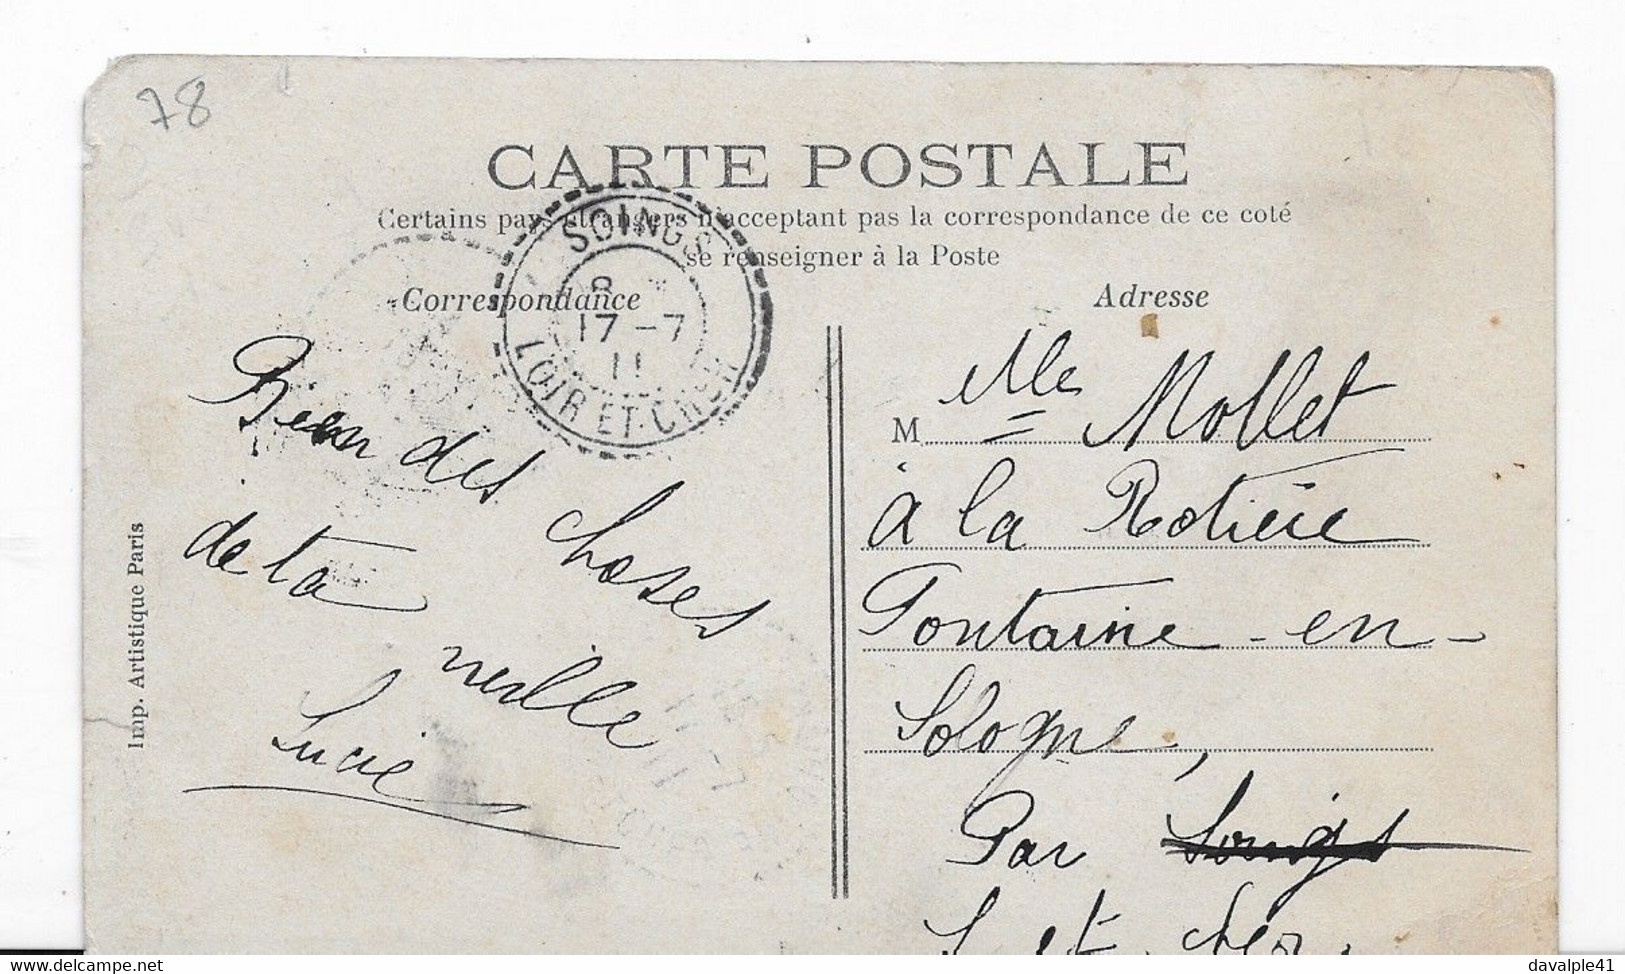 78
CARTE POSTALE
Certains pays étrangers n'acceptant pas la correspondance de ce coté
se renseigner à la Poste
Correspondance
Adresse
SOINGS
8
17 - 7
11
LOIR ET CHER
Bien des choses
de ta vieille
Lucie
Imp. Artistique Paris
M Mlle Mollet
à la Rotière
Fontaine-en-
Sologne,
Par Soings
L. et Cher
davalple41